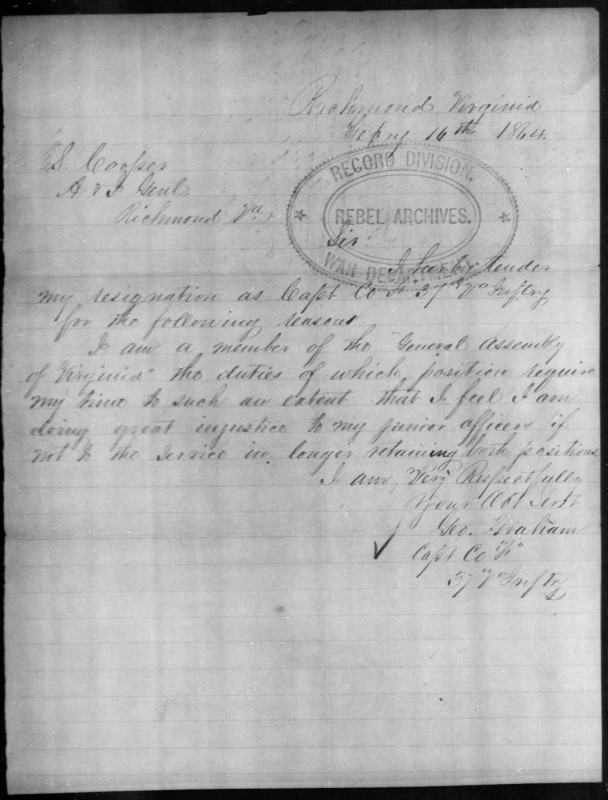 Richmond Virginia
Feby 16th 1864
S. Cooper
A & I Genl
Richmond Va
RECORD DIVISION.
REBEL ARCHIVES.
WAR DEPARTMENT
Sir:
I hereby tender
my resignation as Capt Co F 37th Va Inftry
for the following reasons
I am a member of the "General Assembly
of Virginia" the duties of which position require
my time to such an extent that I feel I am
doing great injustice to my junior officers if
not to the service in longer retaining both positions
I am Very Respectfully
Your Obt Servt
Geo. Graham
Capt Co "F"
37" Va Inftry